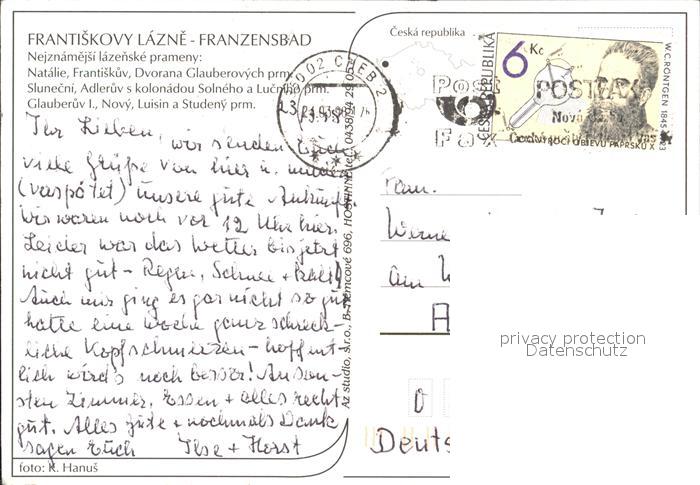 FRANTIŠKOVY LÁZNĚ - FRANZENSBAD
Nejznámější lázeňské prameny:
Natálie, Františkův, Dvorana Glauberových prm.
Sluneční, Adlerův s kolonádou Solného a Lučního prm.
Glauberův I., Nový, Luisin a Studený prm.
Ihr Lieben, wir senden Euch
viele Grüße von hier u. melden
(verspätet) unsere gute Ankunft.
Wir waren noch vor 12 Uhr hier.
Leider war das Wetter bis jetzt
nicht gut - Regen, Schnee + kalt!
Auch mir ging es gar nicht so gut
hatte eine Woche ganz schreck-
liche Kopfschmerzen - hoffent-
lich wird's noch besser! Anson-
sten Zimmer, Essen + alles recht
gut. Alles Gute + nochmals Dank
sagen Euch Ilse + Horst
foto: K. Hanuš
Az studio, s.r.o., B. Němcové 696, HOSTINNÉ, tel.: 0438/94 29 05
Česká republika
CHEB 2
Post
Fax
POSTFAX
6 Kč
ČESKÁ REPUBLIKA
W.C. RÖNTGEN 1845-1923
OBJEVU PAPRSKŮ X
Fam.
Werne
am
D
Deuts
privacy protection
Datenschutz